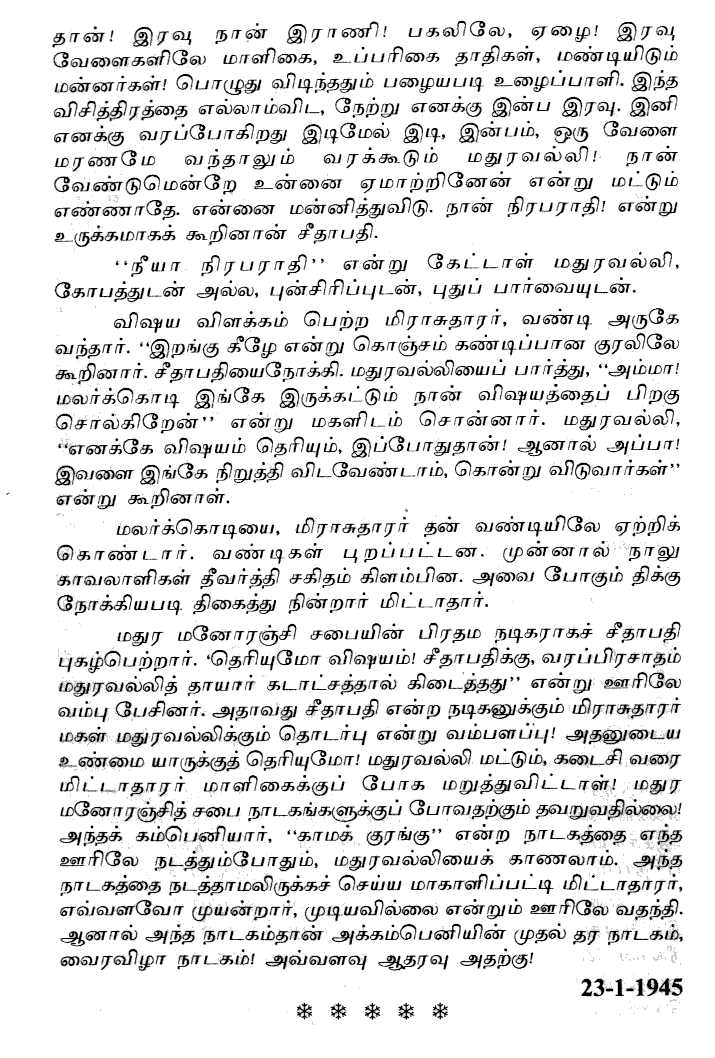 தான்! இரவு நான் இராணி! பகலிலே, ஏழை! இரவு
வேளைகளிலே மாளிகை, உப்பரிகை தாதிகள், மண்டியிடும்
மன்னர்கள்! பொழுது விடிந்ததும் பழையபடி உழைப்பாளி. இந்த
விசித்திரத்தை எல்லாம்விட, நேற்று எனக்கு இன்ப இரவு. இனி
எனக்கு வரப்போகிறது இடிமேல் இடி, இன்பம், ஒரு வேளை
மரணமே வந்தாலும் வரக்கூடும் மதுரவல்லி! நான்
வேண்டுமென்றே உன்னை ஏமாற்றினேன் என்று மட்டும்
எண்ணாதே. என்னை மன்னித்துவிடு. நான் நிரபராதி! என்று
உருக்கமாகக் கூறினான் சீதாபதி.
‘‘நீயா நிரபராதி’’ என்று கேட்டாள் மதுரவல்லி,
கோபத்துடன் அல்ல, புன்சிரிப்புடன், புதுப் பார்வையுடன்.
விஷய விளக்கம் பெற்ற மிராசுதாரர், வண்டி அருகே
வந்தார். ‘‘இறங்கு கீழே என்று கொஞ்சம் கண்டிப்பான குரலிலே
கூறினார். சீதாபதியைநோக்கி. மதுரவல்லியைப் பார்த்து, ‘‘அம்மா!
மலர்க்கொடி இங்கே இருக்கட்டும் நான் விஷயத்தைப் பிறகு
சொல்கிறேன்’’ என்று மகளிடம் சொன்னார். மதுரவல்லி,
‘‘எனக்கே விஷயம் தெரியும், இப்போதுதான்! ஆனால் அப்பா!
இவளை இங்கே நிறுத்தி விடவேண்டாம், கொன்று விடுவார்கள்’’
என்று கூறினாள்.
மலர்க்கொடியை, மிராசுதாரர் தன் வண்டியிலே ஏற்றிக்
கொண்டார். வண்டிகள் புறப்பட்டன. முன்னால் நாலு
காவலாளிகள் தீவர்த்தி சகிதம் கிளம்பின. அவை போகும் திக்கு
நோக்கியபடி திகைத்து நின்றார் மிட்டாதார்.
மதுர மனோரஞ்சி சபையின் பிரதம நடிகராகச் சீதாபதி
புகழ்பெற்றார். ‘தெரியுமோ விஷயம்! சீதாபதிக்கு, வரப்பிரசாதம்
மதுரவல்லித் தாயார் கடாட்சத்தால் கிடைத்தது’’ என்று ஊரிலே
வம்பு பேசினர். அதாவது சீதாபதி என்ற நடிகனுக்கும் மிராசுதாரர்
மகள் மதுரவல்லிக்கும் தொடர்பு என்று வம்பளப்பு! அதனுடைய
உண்மை யாருக்குத் தெரியுமோ! மதுரவல்லி மட்டும், கடைசி வரை
மிட்டாதாரர் மாளிகைக்குப் போக மறுத்துவிட்டாள்! மதுர
மனோரஞ்சித் சபை நாடகங்களுக்குப் போவதற்கும் தவறுவதில்லை!
அந்தக் கம்பெனியார், ‘‘காமக் குரங்கு’’ என்ற நாடகத்தை எந்த
ஊரிலே நடத்தும்போதும், மதுரவல்லியைக் காணலாம். அந்த
நாடகத்தை நடத்தாமலிருக்கச் செய்ய மாகாளிப்பட்டி மிட்டாதாரர்,
எவ்வளவோ முயன்றார், முடியவில்லை என்றும் ஊரிலே வதந்தி.
ஆனால் அந்த நாடகம்தான் அக்கம்பெனியின் முதல் தர நாடகம்,
வைரவிழா நாடகம்! அவ்வளவு ஆதரவு அதற்கு!
23-1-1945